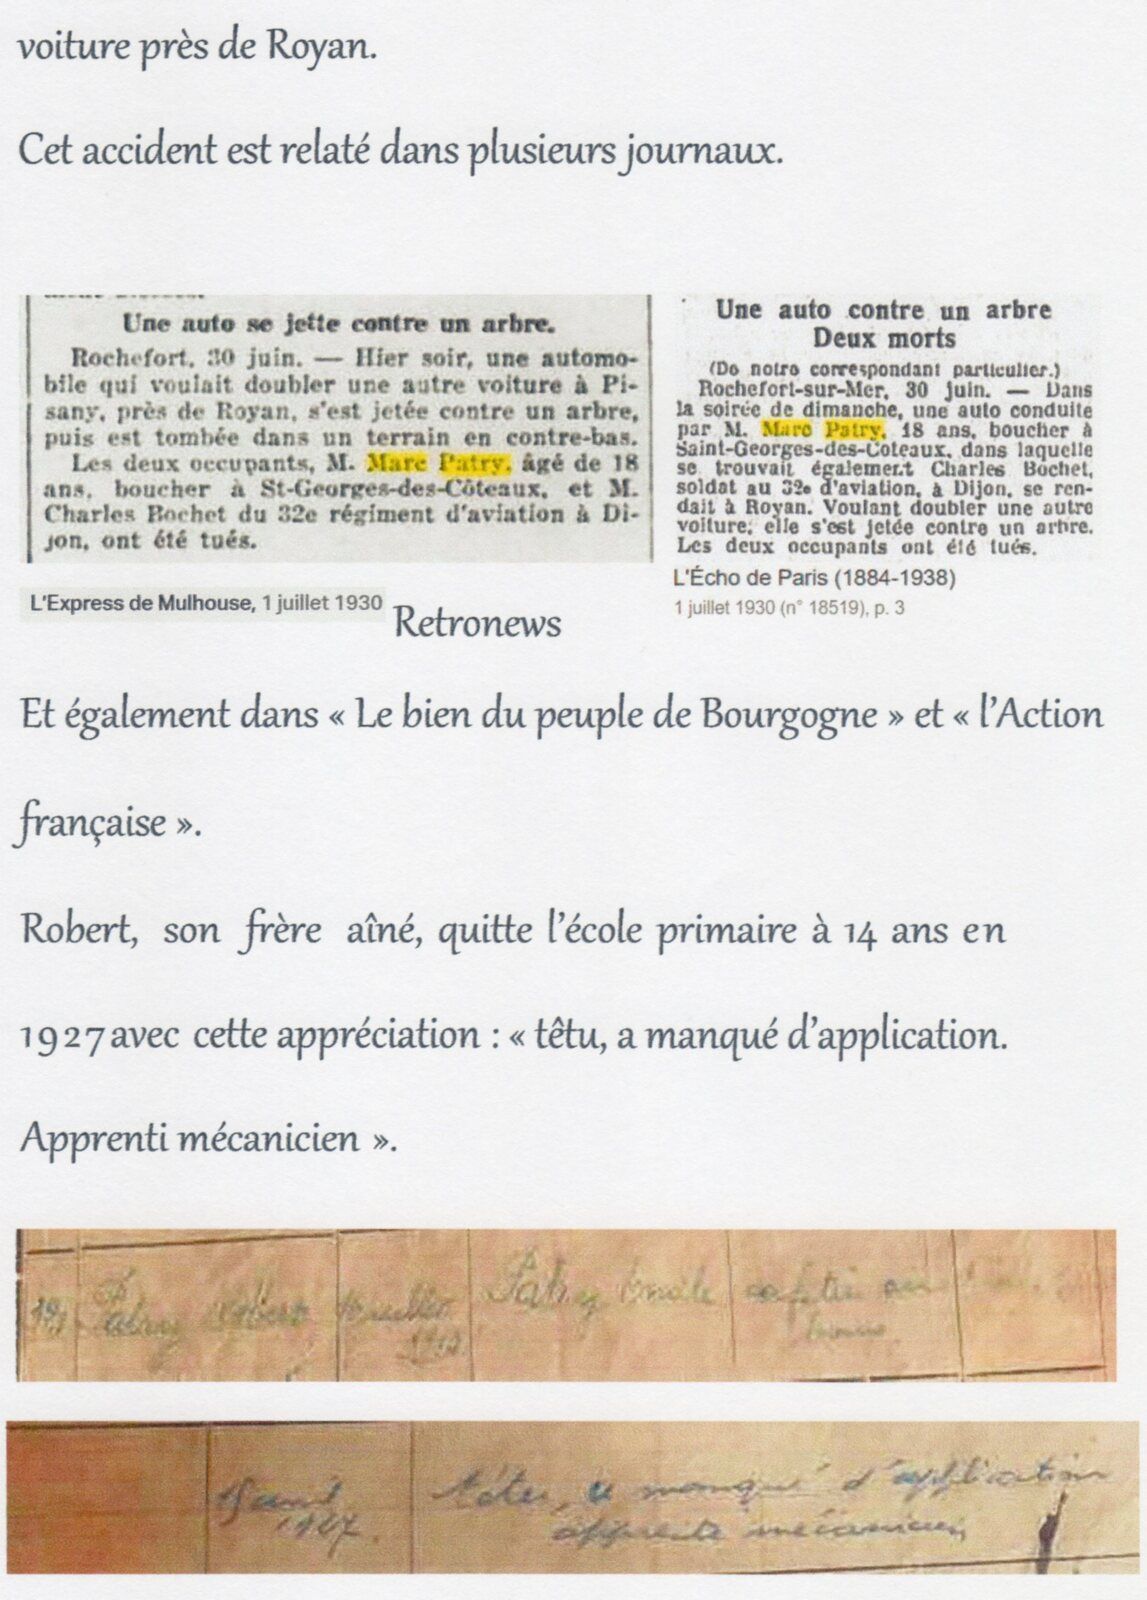 voiture près de Royan.
Cet accident est relaté dans plusieurs journaux.
Une auto se jette contre un arbre.
Rochefort, 30 juin. — Hier soir, une automo-
bile qui voulait doubler une autre voiture à Pi-
sany, près de Royan, s'est jetée contre un arbre,
puis est tombée dans un terrain en contre-bas.
Les deux occupants, M. Marc Patry, âgé de 18
ans, boucher à St-Georges-des-Côteaux, et M.
Charles Bochet du 32e régiment d'aviation à Di-
jon, ont été tués.
L'Express de Mulhouse, 1 juillet 1930
Retronews
Une auto contre un arbre
Deux morts
(De notre correspondant particulier.)
Rochefort-sur-Mer, 30 juin. — Dans
la soirée de dimanche, une auto conduite
par M. Marc Patry, 18 ans, boucher à
Saint-Georges-des-Coteaux, dans laquelle
se trouvait également Charles Bochet,
soldat au 32e d'aviation, à Dijon, se ren-
dait à Royan. Voulant doubler une autre
voiture, elle s'est jetée contre un arbre.
Les deux occupants ont été tués.
L'Écho de Paris (1884-1938)
1 juillet 1930 (n° 18519), p. 3
Et également dans « Le bien du peuple de Bourgogne » et « l'Action
française ».
Robert, son frère aîné, quitte l'école primaire à 14 ans en
1927 avec cette appréciation : « têtu, a manqué d'application.
Apprenti mécanicien ».
Patry Robert Patry Emile
avril têtu, a manqué d'application
1927 apprenti mécanicien